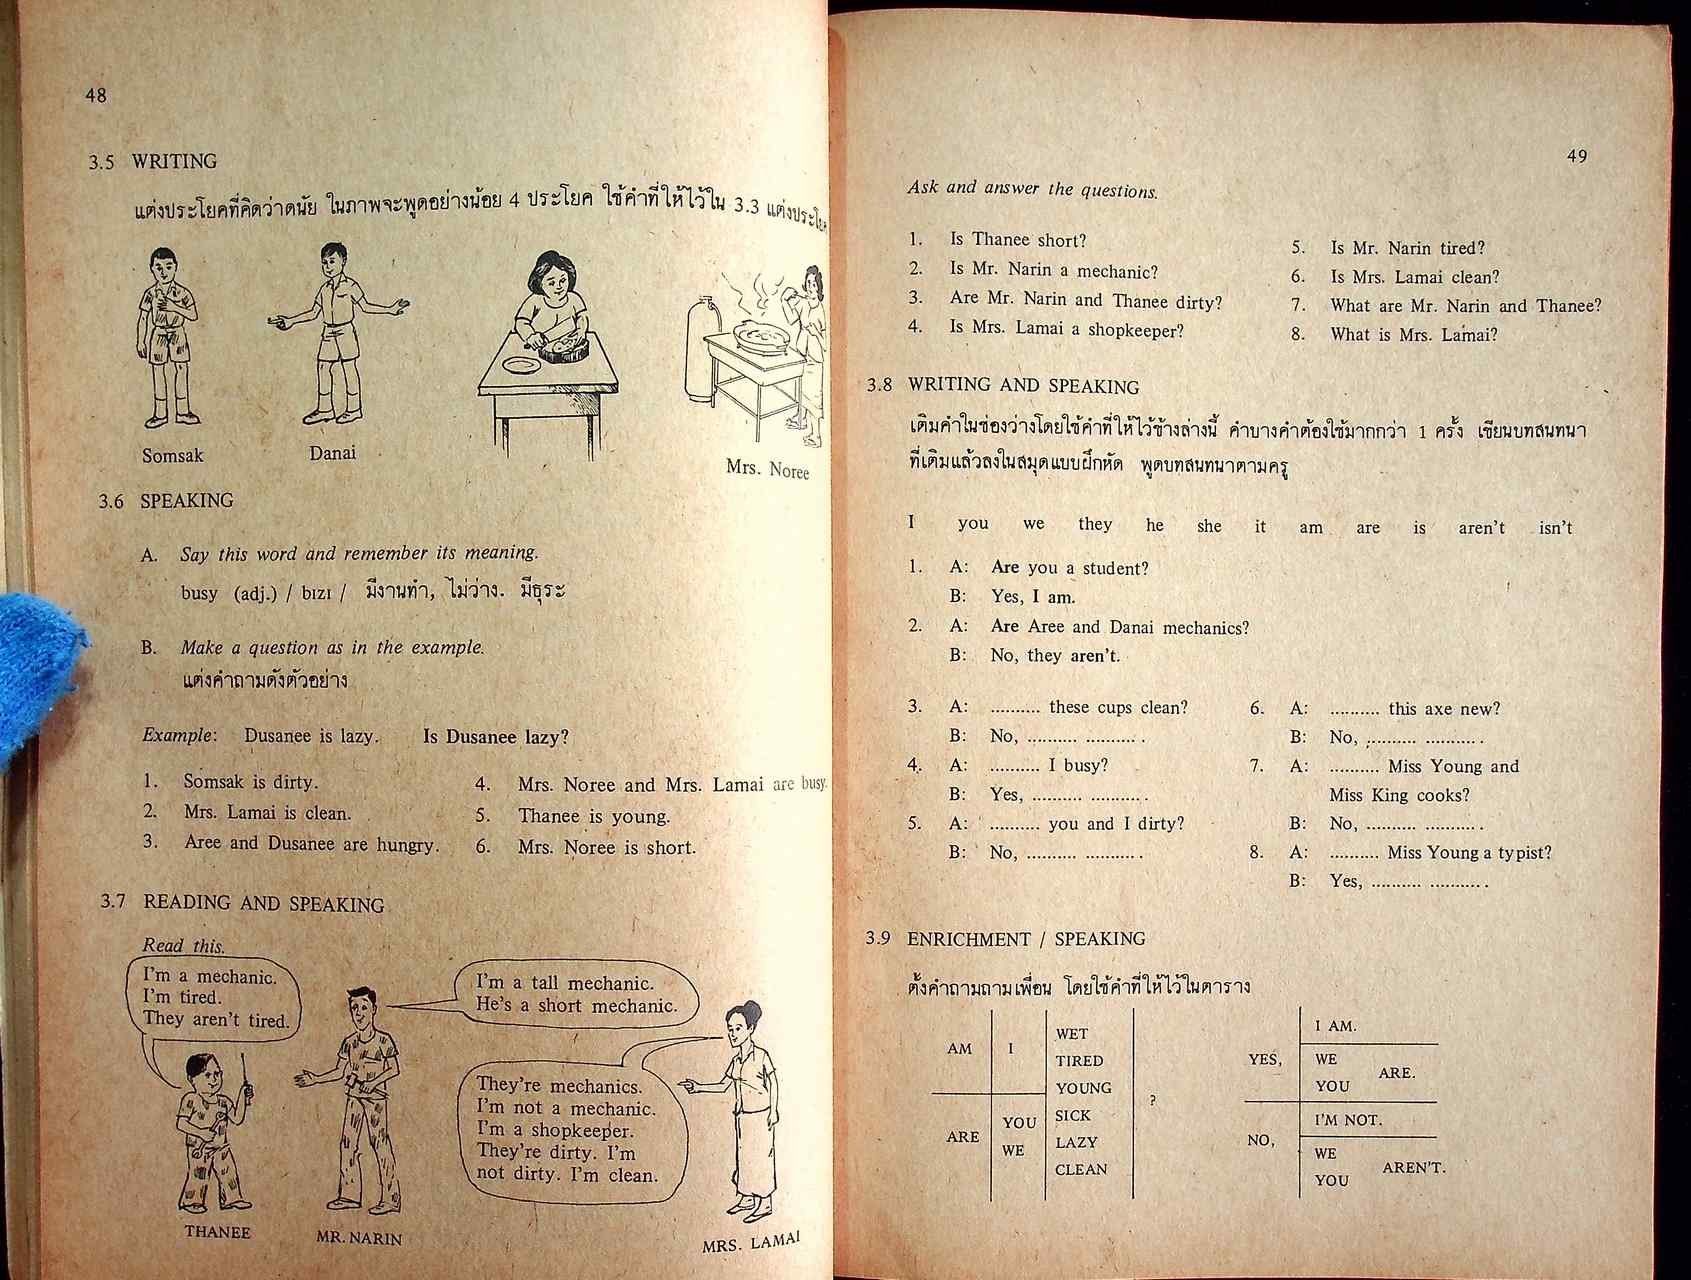 48
3.5 WRITING
แต่งประโยคที่คิดว่าดนัย ในภาพจะพูดอย่างน้อย 4 ประโยค ใช้คำที่ให้ไว้ใน 3.3 แต่งประโยค
Somsak
Danai
Mrs. Noree
3.6 SPEAKING
A. Say this word and remember its meaning.
busy (adj.) / bɪzɪ / มีงานทำ, ไม่ว่าง. มีธุระ
B. Make a question as in the example.
แต่งคำถามดังตัวอย่าง
Example: Dusanee is lazy. Is Dusanee lazy?
1. Somsak is dirty.
2. Mrs. Lamai is clean.
3. Aree and Dusanee are hungry.
4. Mrs. Noree and Mrs. Lamai are busy.
5. Thanee is young.
6. Mrs. Noree is short.
3.7 READING AND SPEAKING
Read this.
I'm a mechanic.
I'm tired.
They aren't tired.
I'm a tall mechanic.
He's a short mechanic.
They're mechanics.
I'm not a mechanic.
I'm a shopkeeper.
They're dirty. I'm
not dirty. I'm clean.
THANEE
MR. NARIN
MRS. LAMAI
49
Ask and answer the questions.
1. Is Thanee short?
2. Is Mr. Narin a mechanic?
3. Are Mr. Narin and Thanee dirty?
4. Is Mrs. Lamai a shopkeeper?
5. Is Mr. Narin tired?
6. Is Mrs. Lamai clean?
7. What are Mr. Narin and Thanee?
8. What is Mrs. Lamai?
3.8 WRITING AND SPEAKING
เติมคำในช่องว่างโดยใช้คำที่ให้ไว้ข้างล่างนี้ คำบางคำต้องใช้มากกว่า 1 ครั้ง เขียนบทสนทนา
ที่เติมแล้วลงในสมุดแบบฝึกหัด พูดบทสนทนาตามครู
I you we they he she it am are is aren't isn't
1. A: Are you a student?
B: Yes, I am.
2. A: Are Aree and Danai mechanics?
B: No, they aren't.
3. A: .......... these cups clean?
B: No, .......... .......... .
4. A: .......... I busy?
B: Yes, .......... .......... .
5. A: .......... you and I dirty?
B: No, .......... .......... .
6. A: .......... this axe new?
B: No, .......... .......... .
7. A: .......... Miss Young and
Miss King cooks?
B: No, .......... .......... .
8. A: .......... Miss Young a typist?
B: Yes, .......... .......... .
3.9 ENRICHMENT / SPEAKING
ตั้งคำถามถามเพื่อน โดยใช้คำที่ให้ไว้ในตาราง
AM I
ARE YOU
WE
WET
TIRED
YOUNG
SICK
LAZY
CLEAN
?
YES, I AM.
WE
YOU ARE.
NO, I'M NOT.
WE
YOU AREN'T.